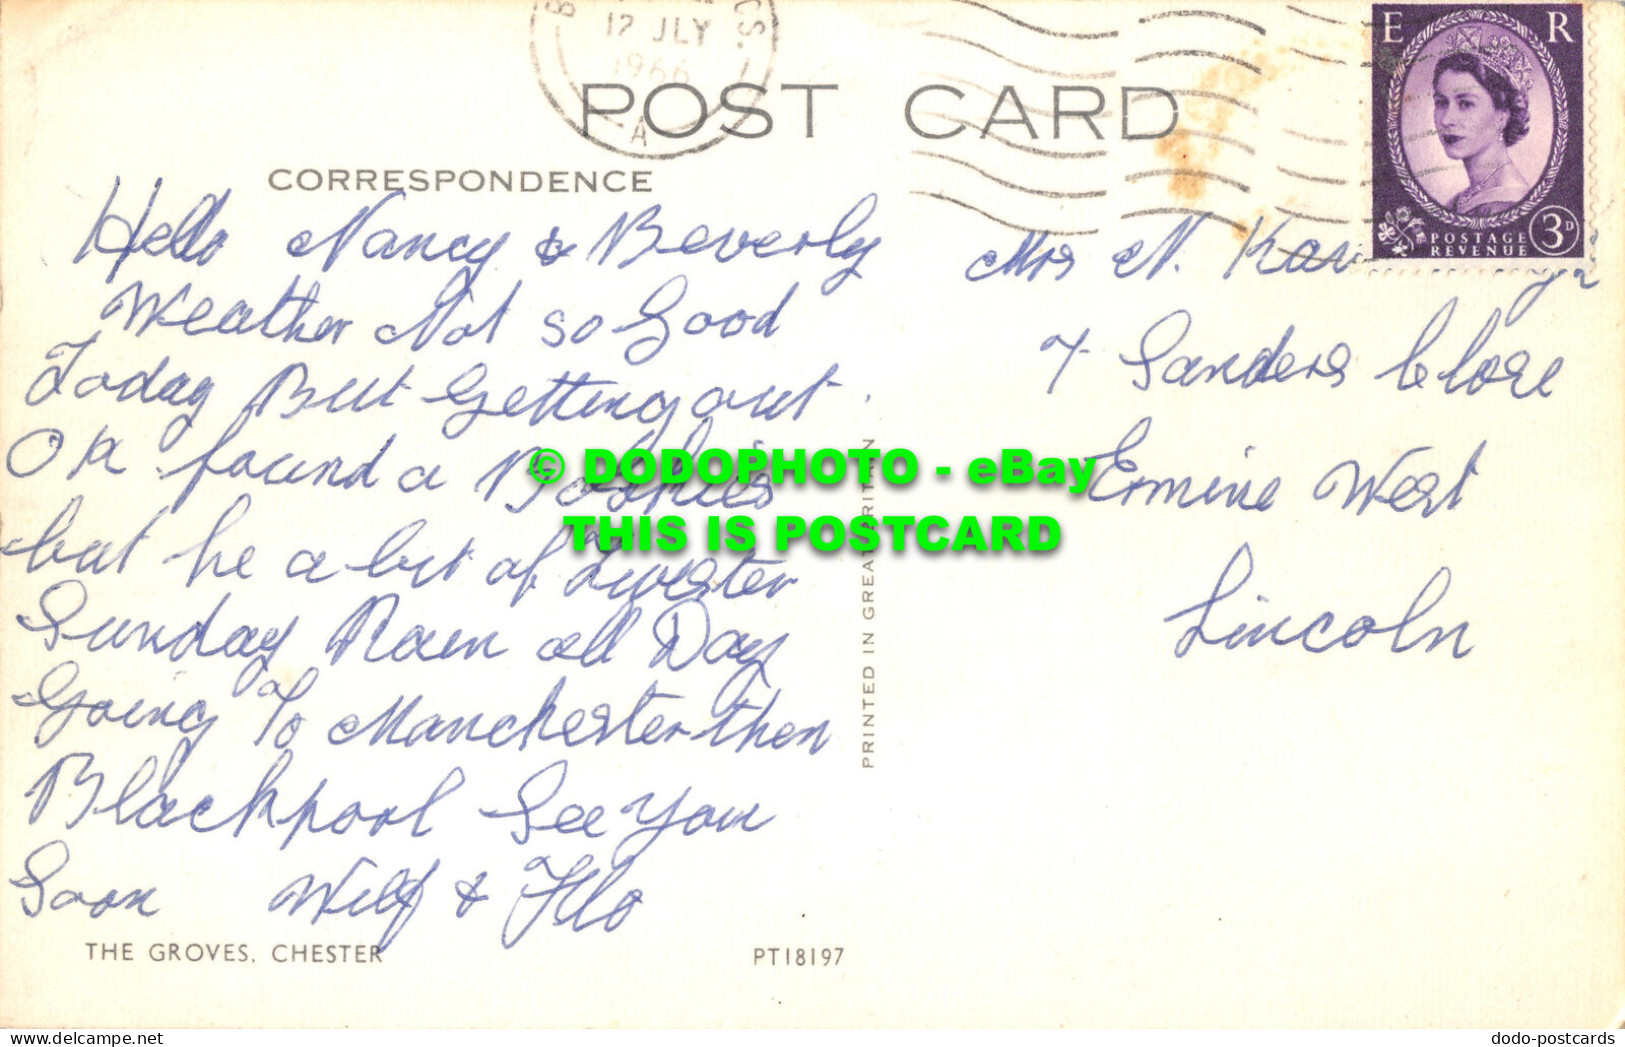 12 JLY
1966
A
POST CARD
E R
POSTAGE
REVENUE
3D
CORRESPONDENCE
Hello Nancy & Beverly
Weather Not so Good
Today But Getting out
OK found a
but he a bit of
Sunday Rain all Day
Going To Manchester then
Blackpool See You
Soon Wilf & Flo
Mrs N.
7 Sanders Close
Ermine West
Lincoln
© DODOPHOTO - eBay
THIS IS POSTCARD
PRINTED IN GREAT BRITAIN
THE GROVES, CHESTER
PT18197
dodo-postcards